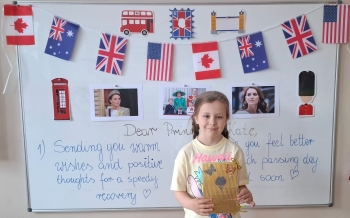 Dear Prin
1) Sending you warm
wishes and positive
thoughts for a speedy
recovery ♡
you feel better
passing day
soon ♡